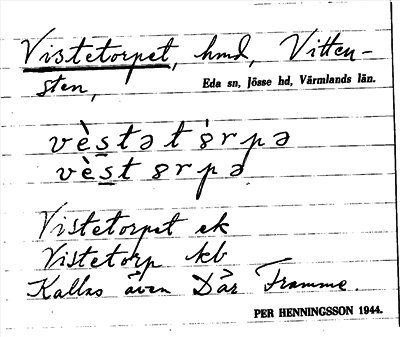 Vistetorpet, hmd, Vitten-
sten,
Eda sn, Jösse hd, Värmlands län.
vèstət ȣ̀rpə
vèst ȣrpə
Vistetorpet ek
Vistetorp kb
Kallas även Där Framme.
PER HENNINGSSON 1944.